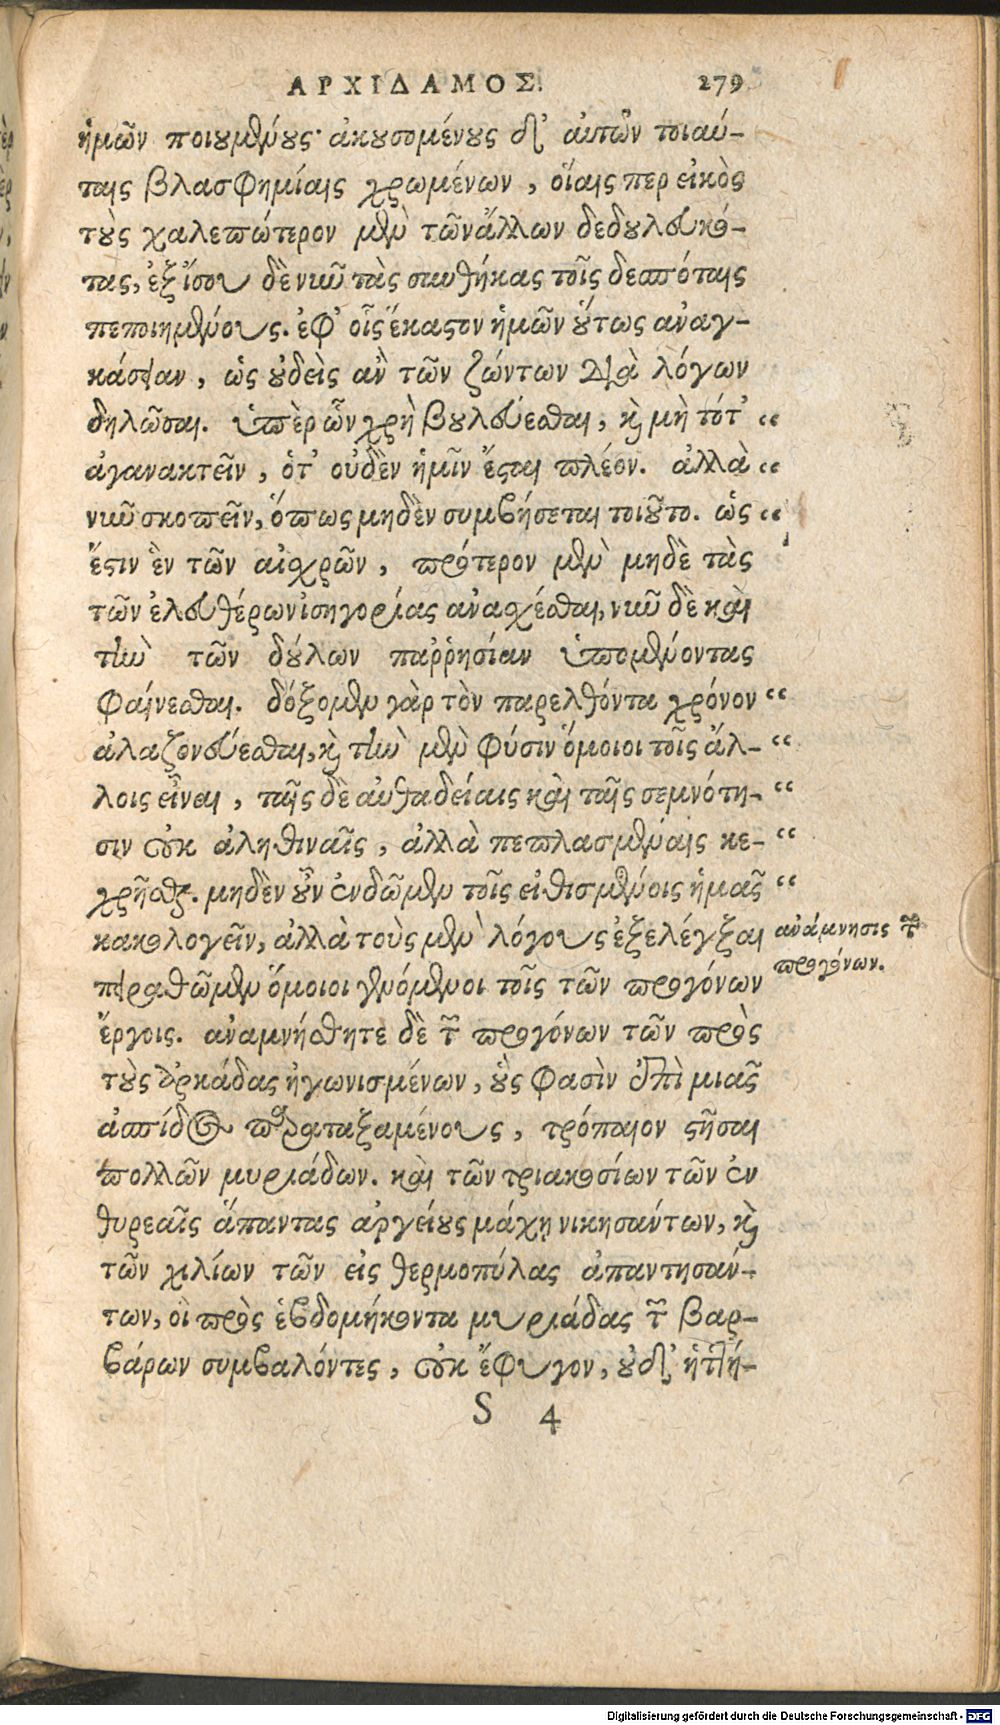 ΑΡΧΙΔΑΜΟΣ. 279
ἡμῶν ποιουμένους· ἀκουσομένους δ' αὐτῶν τοιαύ-
ταις βλασφημίαις χρωμένων, οἵαις περ εἰκὸς
τοὺς χαλεπώτερον μὲν τῶν ἄλλων δεδουλευκό-
τας, ἐξίσου δὲ νῦν τὰς συνθήκας τοῖς δεσπόταις
πεποιημένους. ἐφ' οἷς ἕκαστον ἡμῶν οὕτως ἀναγ-
κάσειαν, ὡς οὐδεὶς ἂν τῶν ζώντων διὰ λόγων
δηλῶσαι. ὑπὲρ ὧν χρὴ βουλεύεσθαι, καὶ μὴ τότ' “
ἀγανακτεῖν, ὅτ' οὐδὲν ἡμῖν ἔσται πλέον. ἀλλὰ “
νῦν σκοπεῖν, ὅπως μηδὲν συμβήσεται τοιοῦτο. ὡς “
ἔστιν ἓν τῶν αἰσχρῶν, πρότερον μὲν μηδὲ τὰς
τῶν ἐλευθέρων ἰσηγορίας ἀνασχέσθαι, νῦν δὲ καὶ
τὴν τῶν δούλων παῤῥησίαν ὑπομένοντας
φαίνεσθαι. δόξομεν γὰρ τὸν παρελθόντα χρόνον “
ἀλαζονεύεσθαι, καὶ τὴν μὲν φύσιν ὅμοιοι τοῖς ἄλ- “
λοις εἶναι, ταῖς δὲ αὐθαδείαις καὶ ταῖς σεμνότη- “
σιν οὐκ ἀληθιναῖς, ἀλλὰ πεπλασμέναις κε- “
χρῆσθαι. μηδὲν οὖν ἐνδῶμεν τοῖς εἰθισμένοις ἡμᾶς “
κακολογεῖν, ἀλλὰ τοὺς μὲν λόγους ἐξελέγξαι
πειραθῶμεν ὅμοιοι γενόμενοι τοῖς τῶν προγόνων
ἔργοις. ἀναμνήσθητε δὲ τῶν προγόνων τῶν πρὸς
τοὺς ἀρκάδας ἠγωνισμένων, οὓς φασὶν ἐπὶ μιᾶς
ἀσπίδος παραταξαμένους, τρόπαιον στῆσαι
πολλῶν μυριάδων. καὶ τῶν τριακοσίων τῶν ἐν
θυρεαῖς ἅπαντας ἀργείους μάχῃ νικησάντων, καὶ
τῶν χιλίων τῶν εἰς θερμοπύλας ἀπαντησάν-
των, οἳ πρὸς ἑβδομήκοντα μυριάδας τῶν βαρ-
βάρων συμβαλόντες, οὐκ ἔφυγον, οὐδ' ἡττή-
S 4
ἀνάμνησις τῶν
προγόνων.
Digitalisierung gefördert durch die Deutsche Forschungsgemeinschaft - DFG